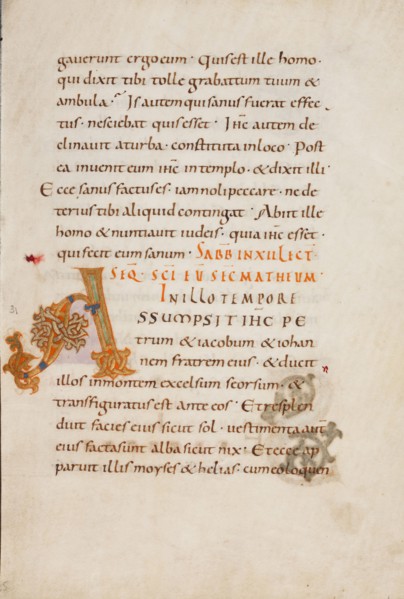 gaverunt ergo eum · Quis est ille homo ·
qui dixit tibi tolle grabattum tuum &
ambula · Is autem qui sanus fuerat effec
tus · nesciebat quis esset · IHC autem de
clinavit a turba · constituta in loco · Post
ea invenit eum IHC in templo · & dixit illi
Ecce sanus factus es · iam noli peccare · ne de
terius tibi aliquid contingat · Abiit ille
homo & nuntiavit iudeis · quia IHC esset ·
qui fecit eum sanum · SABB IN XII LECT
SEQ · SCI EU SEC MATHEUM ·
IN ILLO TEMPORE
ASSUMPSIT IHC PE
trum & iacobum & iohan
nem fratrem eius · & ducit
illos in montem excelsum seorsum · &
transfiguratus est ante eos · Et resplen
duit facies eius sicut sol · vestimenta aut
eius facta sunt alba sicut nix · Et ecce ap
paruit illis moyses & helias · cum eo loquen